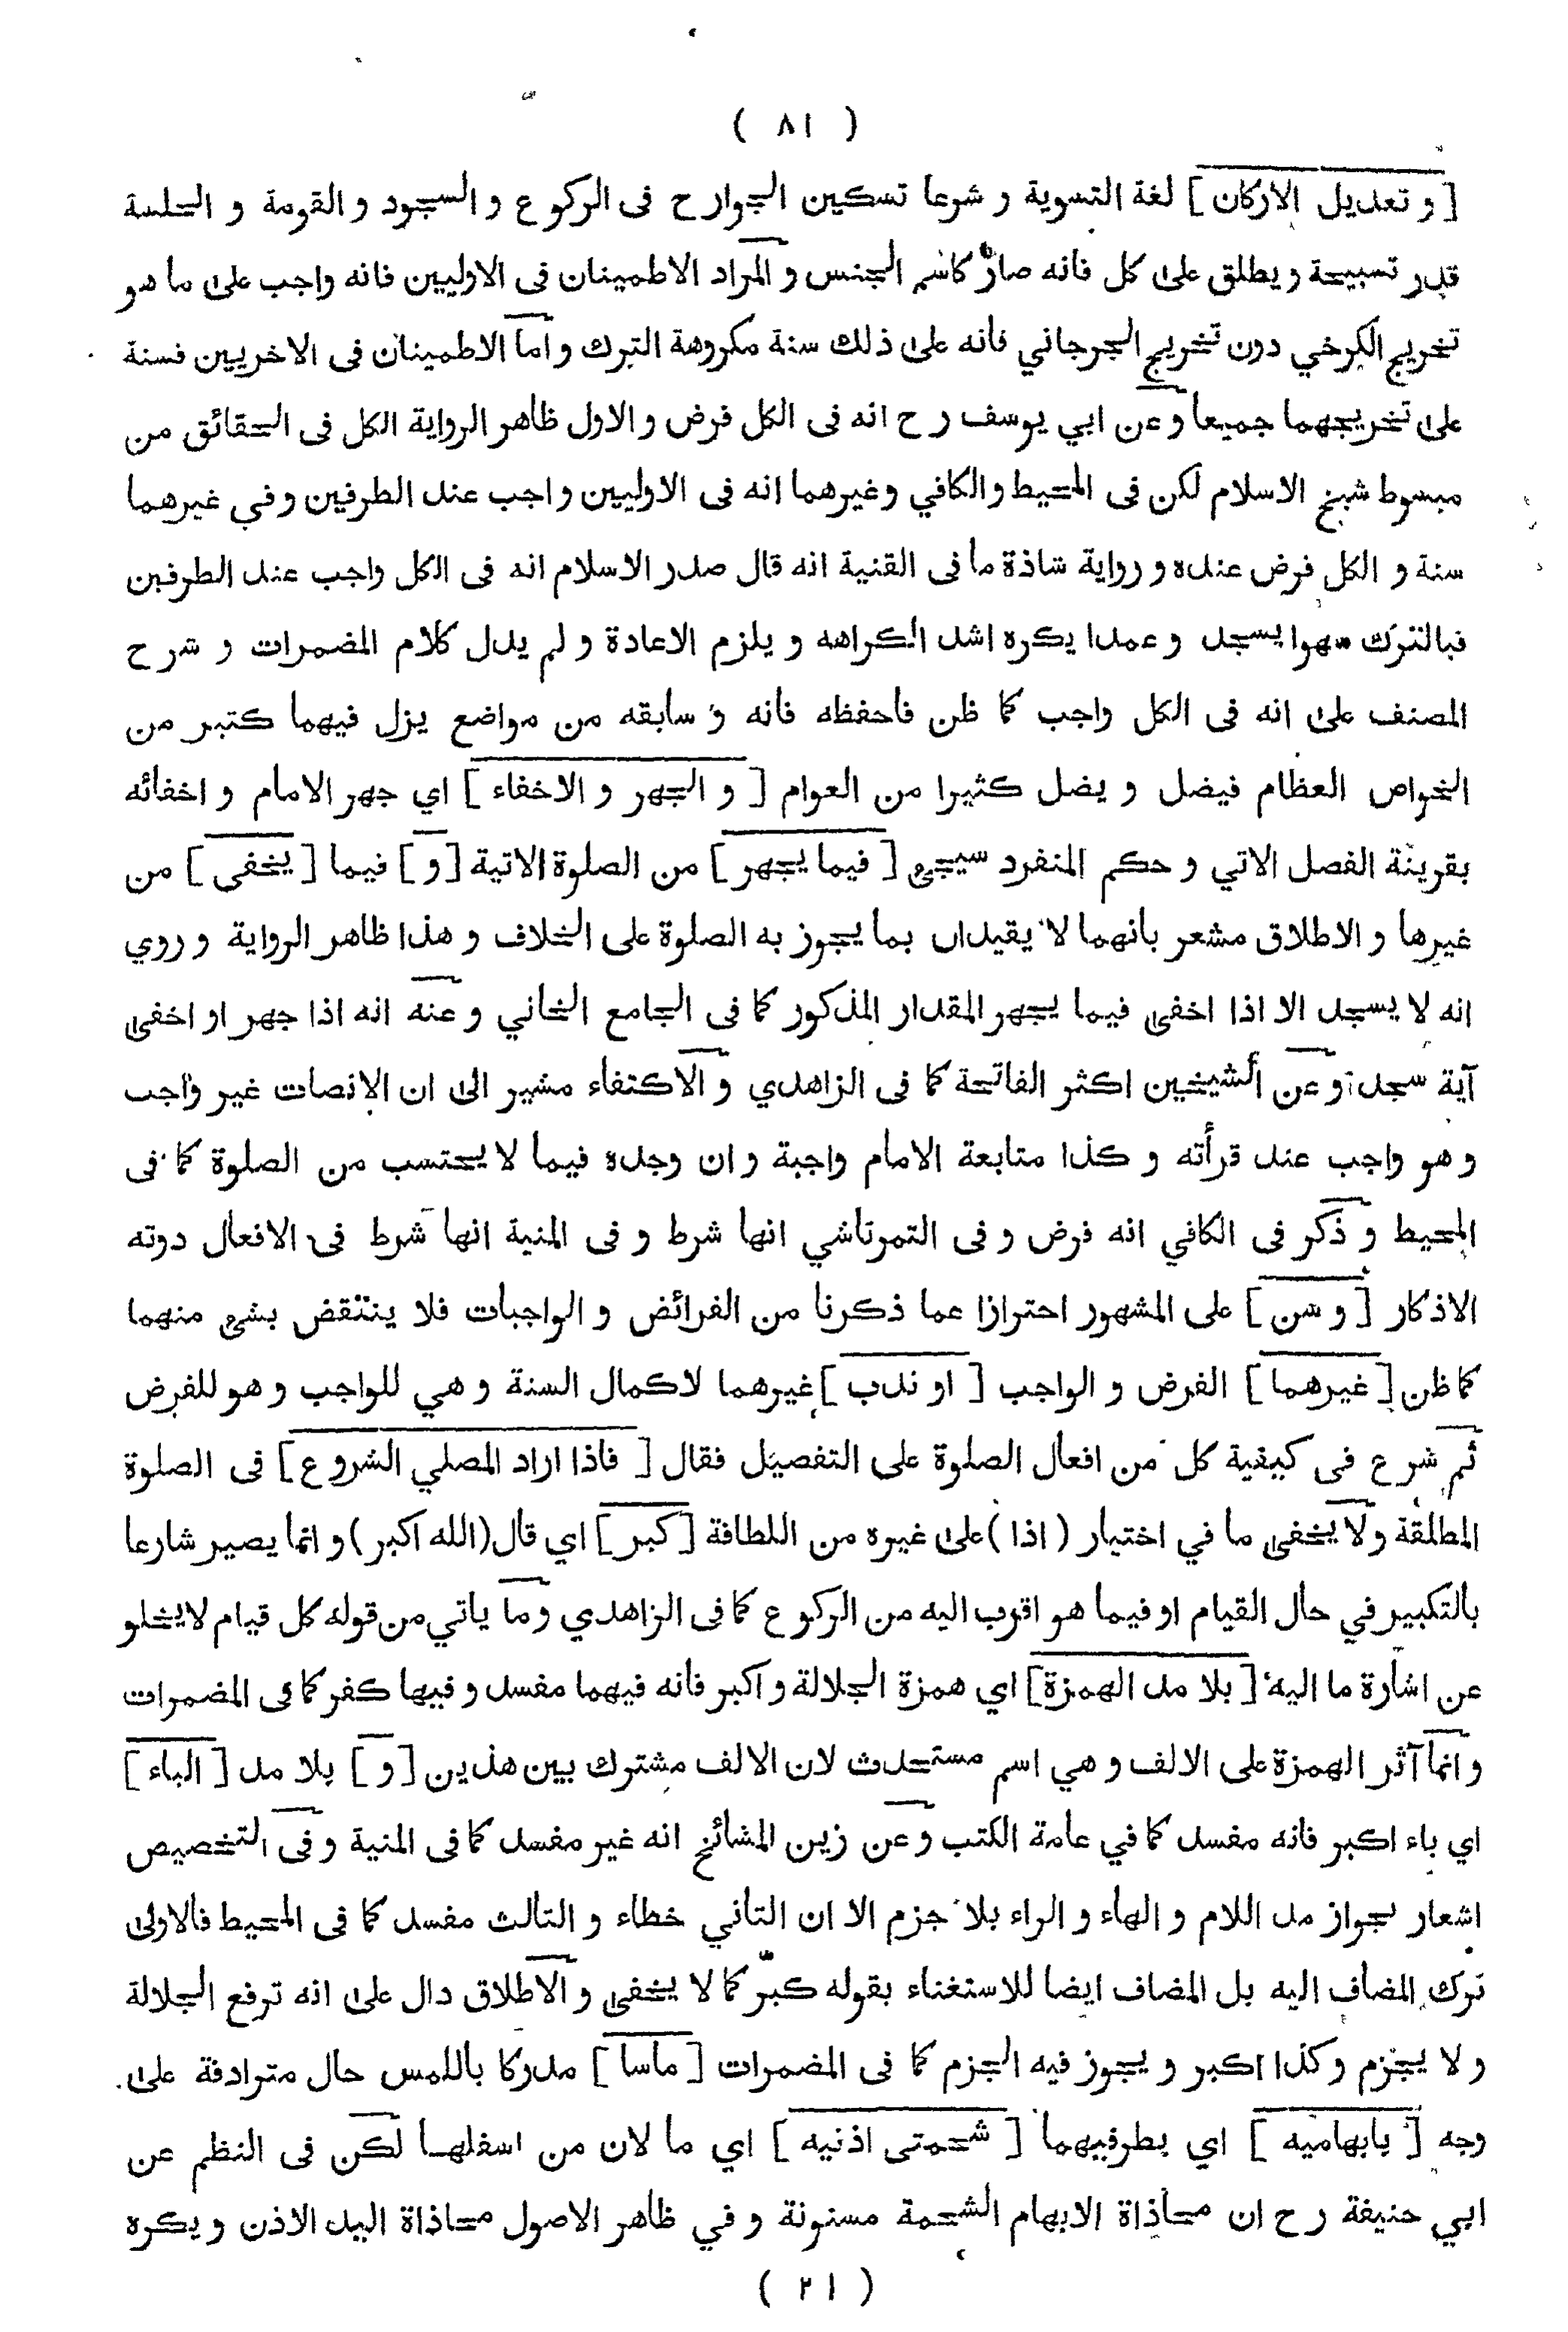 ( ٨١ )
[ و تعديل الاركان ] لغة التسوية و شرعا تسكين الجوارح فى الركوع و السجود و القومة و الجلسة
قدر تسبيحة و يطلق على كل فانه صار كاسم الجنس و المراد الاطمينان فى الاوليين فانه واجب على ما هو
تخريج الكرخي دون تخريج الجرجاني فانه على ذلك سنة مكروهة الترك و اما الاطمينان فى الاخريين فسنة
على تخريجهما جميعا و عن ابي يوسف رح انه فى الكل فرض و الاول ظاهر الرواية الكل فى الحقائق من
مبسوط شيخ الاسلام لكن فى المحيط و الكافي و غيرهما انه فى الاوليين واجب عند الطرفين و في غيرهما
سنة و الكل فرض عنده و رواية شاذة ما فى القنية انه قال صدر الاسلام انه فى الكل واجب عند الطرفين
فبالترك سهوا يسجد و عمدا يكره اشد الكراهه و يلزم الاعادة و لم يدل كلام المضمرات و شرح
المصنف على انه فى الكل واجب كما ظن فاحفظه فانه و سابقه من مواضع يزل فيهما كثير من
الخواص العظام فيضل و يضل كثيرا من العوام [ و الجهر و الاخفاء ] اي جهر الامام و اخفائه
بقرينة الفصل الاتي و حكم المنفرد سيجىء [ فيما يجهر ] من الصلوة الاتية [ و ] فيما [ يخفى ] من
غيرها و الاطلاق مشعر بانهما لا يقيدان بما يجوز به الصلوة على الخلاف و هذا ظاهر الرواية و روي
انه لا يسجد الا اذا اخفى فيما يجهر المقدار المذكور كما فى الجامع الخاني و عنه انه اذا جهر او اخفى
آية سجد و عن الشيخين اكثر الفاتحة كما فى الزاهدي و الاكتفاء مشير الى ان الانصات غير واجب
و هو واجب عند قرأته و كذا متابعة الامام واجبة و ان وجده فيما لا يحتسب من الصلوة كما فى
المحيط و ذكر فى الكافي انه فرض و فى التمرتاشي انها شرط و فى المنية انها شرط فى الافعال دونه
الاذكار [ و سن ] على المشهور احترازا عما ذكرنا من الفرائض و الواجبات فلا ينتقض بشىء منهما
كما ظن [ غيرهما ] الفرض و الواجب [ او ندب ] غيرهما لاكمال السنة و هي للواجب و هو للفرض
ثم شرع فى كيفية كل من افعال الصلوة على التفصيل فقال [ فاذا اراد المصلي الشروع ] فى الصلوة
المطلقة و لا يخفى ما في اختيار ( اذا ) على غيره من اللطافة [ كبر ] اي قال ( الله اكبر ) و انما يصير شارعا
بالتكبير في حال القيام او فيما هو اقرب اليه من الركوع كما فى الزاهدي و ما ياتي من قوله كل قيام لا يخلو
عن اشارة ما اليه [ بلا مد الهمزة ] اي همزة الجلالة و اكبر فانه فيهما مفسد و فيها كفر كما فى المضمرات
و انما آثر الهمزة على الالف و هي اسم مستحدث لان الالف مشترك بين هذين [ و ] بلا مد [ الباء ]
اي باء اكبر فانه مفسد كما في عامة الكتب و عن زين المشائخ انه غير مفسد كما فى المنية و فى التخصيص
اشعار بجواز مد اللام و الهاء و الراء بلا جزم الا ان الثاني خطاء و الثالث مفسد كما فى المحيط فالاولى
ترك المضاف اليه بل المضاف ايضا للاستغناء بقوله كبّر كما لا يخفى و الاطلاق دال على انه ترفع الجلالة
و لا يجزم و كذا اكبر و يجوز فيه الجزم كما فى المضمرات [ ماسا ] مدركا باللمس حال مترادفة على
وجه [ بابهاميه ] اي بطرفيهما [ شحمتى اذنيه ] اي ما لان من اسفلهـا لكن فى النظم عن
ابي حنيفة رح ان محاذاة الابهام الشحمة مسنونة و في ظاهر الاصول محاذاة اليد الاذن و يكره
( ٢١ )